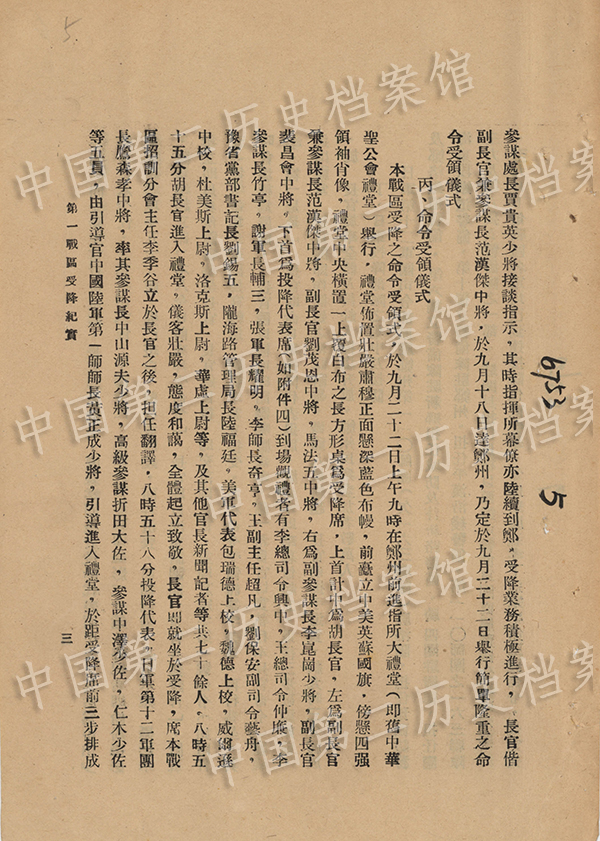 5.
參謀處長賈貴英少將接談指示，其時指揮所幕僚亦陸續到鄭，受降業務積極進行，長官偕
副長官兼參謀長范漢傑中將，於九月十八日達鄭州，乃定於九月二十二日舉行簡單隆重之命
令受領儀式
丙、命令受領儀式
本戰區受降之命令受領式，於九月二十二日上午九時在鄭州前進指所大禮堂（即舊中華
聖公會禮堂）舉行，禮堂佈置壯嚴肅穆正面懸深藍色布幔，前臺立中美英蘇國旗，傍懸四强
領袖肖像，禮堂中央橫置一上覆白布之長方形桌為受降席，上首計中為胡長官，左為副長官
兼參謀長范漢傑中將，副長官劉茂恩中將，馬法五中將，右為副參謀長李崑崗少將，副長官
裴昌會中將，下首為投降代表席（如附件四）到場觀禮者有李總司令興中，王總司令仲廉，李
參謀長竹亭，謝軍長輔三，張軍長耀明，李師長奇亨，王副主任超凡，劉保安副司令藝舟，
豫省黨部書記長劉錫五，隴海路管理局長陸福廷。美軍代表包瑞德上校，魏德上校，威爾遜
中校，杜美斯上尉，洛克斯上尉，華盧上尉等，及其他官長新聞記者等共七十餘人。八時五
十五分胡長官進入禮堂。儀客壯嚴，態度和藹，全體起立致敬。長官即就坐於受降，席本戰
區招訓分會主任李季谷立於長官之後，担任翻譯，八時五十八分投降代表，日軍第十二軍團
長鷹森孝中將，率其參謀長中山源夫少將，高級參謀折田大佐，參謀中澤少佐，仁木少佐
等五員，由引導官中國陸軍第一師師長黃正成少將，引導進入禮堂，於距受降席前三步排成
第一戰區受降紀實
三
6753
5
中国第二历史档案馆
中国第二历史档案馆
中国第二历史档案馆
中国第二历史档案馆
中国第二历史档案馆
中国第二历史档案馆